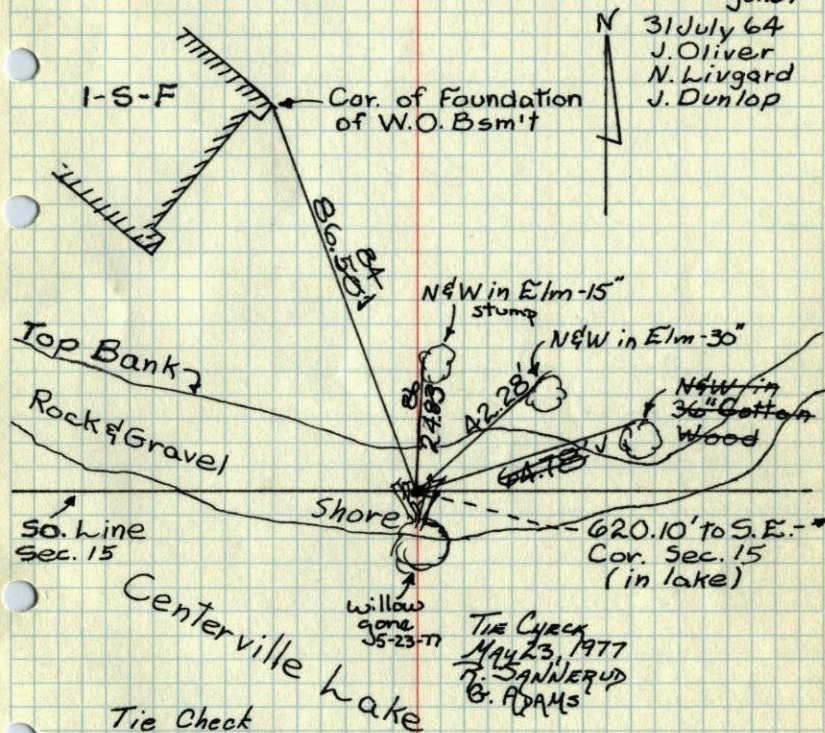 gone.
31 July 64
J. Oliver
N. Livgard
J. Dunlop
N
1-S-F
Cor. of Foundation
of W.O. Bsm't
84
86.50'
N&W in Elm-15"
stump
N&W in Elm-30"
N&W in
36" Cotton
Wood
Top Bank
Rock & Gravel
86
24.83
42.28'
64.78
Shore
So. Line
Sec. 15
620.10' to S.E.
Cor. Sec. 15
(in lake)
Willow
gone
5-23-77
Centerville Lake
Tie Check
May 23, 1977
R. Sannerud
G. Adams
Tie Check